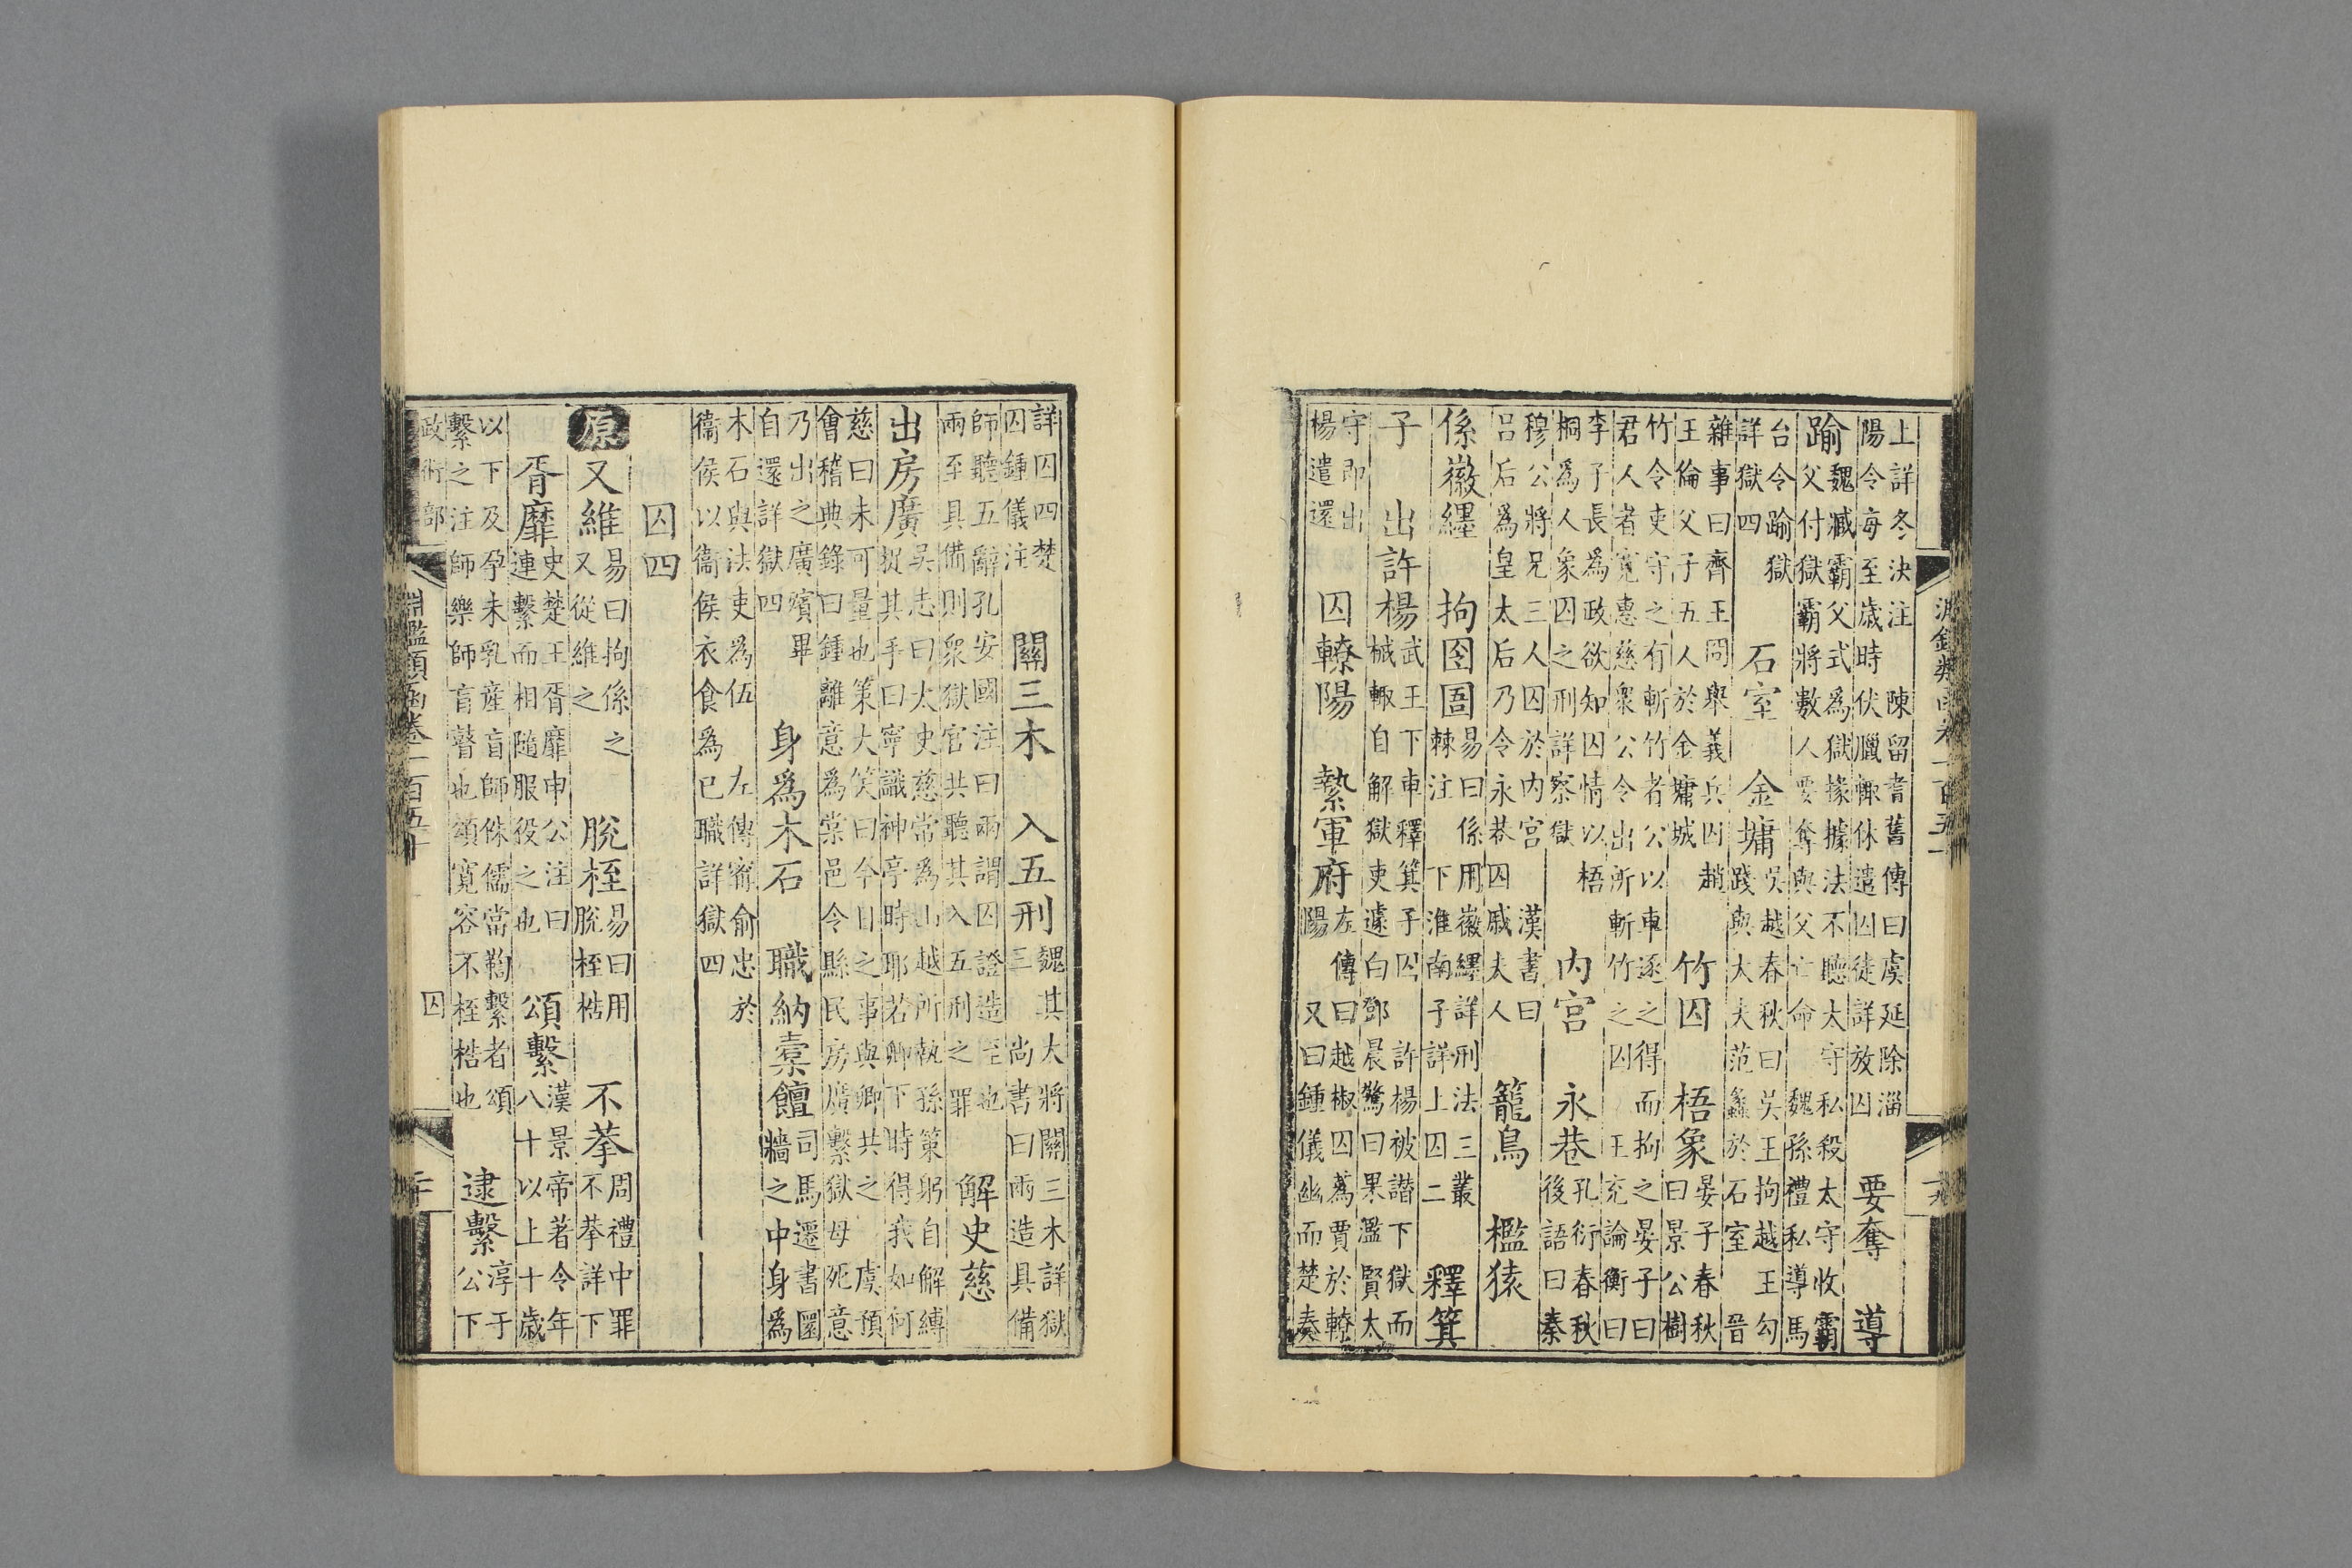 淵鑑類函卷一百五十
上詳冬決注 陳留耆舊傳曰虞延除淄
陽令每至歲時伏臘輒休遣囚徒詳放囚 要奪 導
踰 魏臧霸父式為獄掾據法不聽太守私殺太守收霸
父付獄霸將數人要奪與父亡命 魏孫禮私導馬
台令踰獄
詳獄四 石室 金墉 吳越春秋曰吳王拘越王勾
踐與大夫范蠡於石室 晉
雜事曰齊王冏舉義兵囚趙
王倫父子五人於金墉城 竹囚 梧象 晏子春秋
曰景公樹
竹令吏守之有斬竹者公以車逐之得而拘之晏子曰
君人者寬惠慈衆公令出所斬竹之囚 王充論衡曰
李子長為政欲知囚情以梧
桐為人象囚之刑詳察獄 内宫 永巷 孔衍春秋
後語曰秦
穆公將兄三人囚於内宫 漢書曰
吕后為皇太后乃令永巷囚戚夫人 籠鳥 檻猿
係徽纆 拘囹圄 易曰係用徽纆詳刑法三叢
棘注 下淮南子詳上囚二 釋箕
子 出許楊 武王下車釋箕子囚 許楊被譖下獄而
械輒自解獄吏遽白鄧晨驚曰果濫賢太
守即出
楊遣還 囚轑陽 縶軍府 左傳曰越椒囚蒍賈於轑
陽 又曰鍾儀幽而楚奏
詳囚四楚
囚鍾儀注 關三木 入五刑 魏其大將關三木詳獄
三 尚書曰兩造具備
師聽五辭孔安國注曰兩謂囚證造至也
兩至具備則衆獄官共聽其入五刑之罪 解史慈
出房廣 吳志曰太史慈常為山越所執孫策躬自解縛
捉其手曰寧識神亭時耶若卿下時得我如何
慈曰未可量也策大笑曰今日之事與卿共之 虞預
會稽典錄曰鍾離意為棠邑令縣民房廣繫獄母死意
乃出之廣殯畢
自還詳獄四 身為木石 職納槖饘 司馬遷書圜
牆之中身為
木石與法吏為伍 左傳甯俞忠於
衞侯以衞侯衣食為已職詳獄四
囚四
原 又維 易曰拘係之
又從維之 脫桎 易曰用
脫桎梏 不拲 周禮中罪
不拲詳下
胥靡 史楚王胥靡申公注曰
連繫而相隨服役之也 頌繫 漢景帝著令年
八十以上十歲
以下及孕未乳產盲師侏儒當鞫繫者頌
繫之注師樂師盲瞽也頌寬容不桎梏也 逮繫 淳于
公下
政術部 淵鑑類函卷一百五十 囚 二十